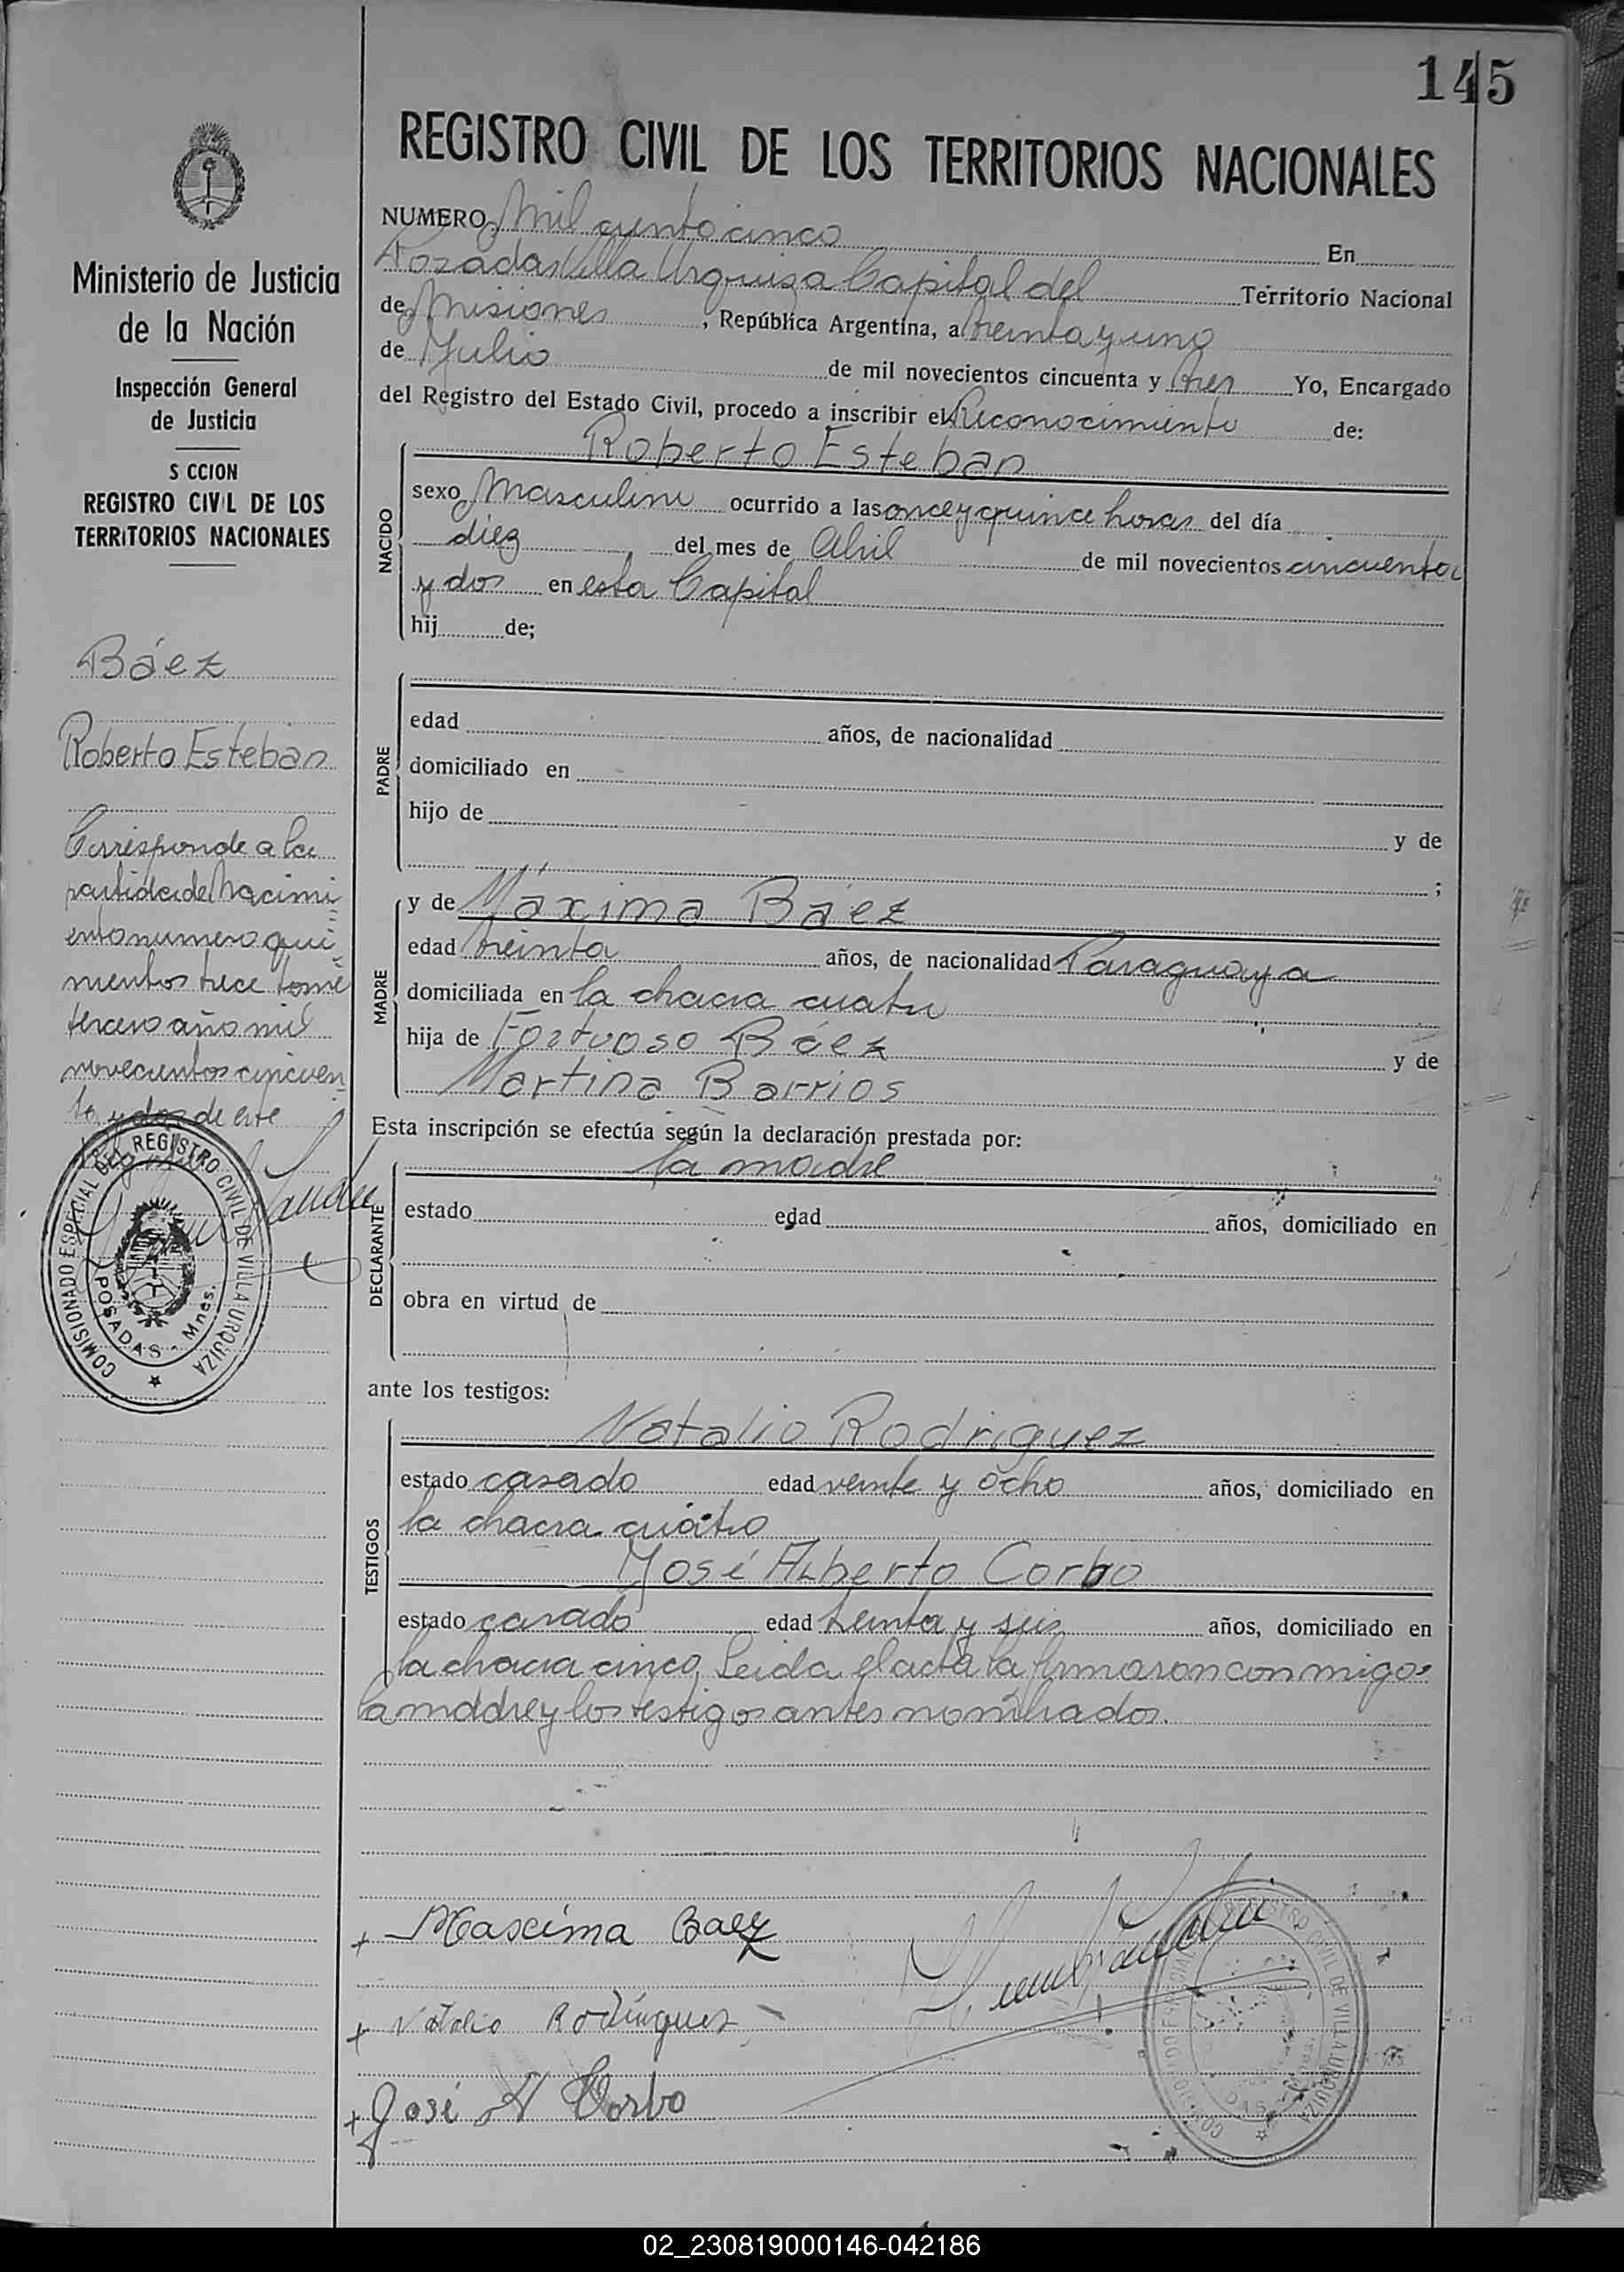 145
REGISTRO CIVIL DE LOS TERRITORIOS NACIONALES
Ministerio de Justicia
de la Nación
Inspección General
de Justicia
S CCION
REGISTRO CIVIL DE LOS
TERRITORIOS NACIONALES
Báez
Roberto Esteban
Corresponde a la
partida de Nacimi
ento numero qui
nientos trece tomo
tercero año mil
novecientos cincuen
ta y dos de este
COMISIONADO ESPECIAL DEL REGISTRO CIVIL DE VILLA URQUIZA
POSADAS - Mnes.
NUMERO Mil ciento cinco En
Posadas Villa Urquiza Capital del Territorio Nacional
de Misiones, República Argentina, a treinta y uno
de Julio de mil novecientos cincuenta y tres Yo, Encargado
del Registro del Estado Civil, procedo a inscribir el Reconocimiento de:
NACIDO
Roberto Esteban
sexo Masculino ocurrido a las once y quince horas del día
diez del mes de Abril de mil novecientos cincuenta
y dos en esta Capital
hij de;
PADRE
edad años, de nacionalidad
domiciliado en
hijo de y de
;
MADRE
y de Máxima Báez
edad treinta años, de nacionalidad Paraguaya
domiciliada en la chacra cuatro
hija de Báez y de
Martina Barrios
Esta inscripción se efectúa según la declaración prestada por:
DECLARANTE
la madre
estado edad años, domiciliado en
obra en virtud de
ante los testigos:
TESTIGOS
Natalio Rodriguez
estado casado edad veinte y ocho años, domiciliado en
la chacra cuatro
José Alberto Corbo
estado casado edad treinta y seis años, domiciliado en
la chacra cinco, Leida el acta la firmaron conmigo
la madre y los testigos antes nombrados.
+ Maxima Baez
+ Natalio Rodríguez
+ José A Corbo
REGISTRO CIVIL DE VILLA URQUIZA
02_230819000146-042186